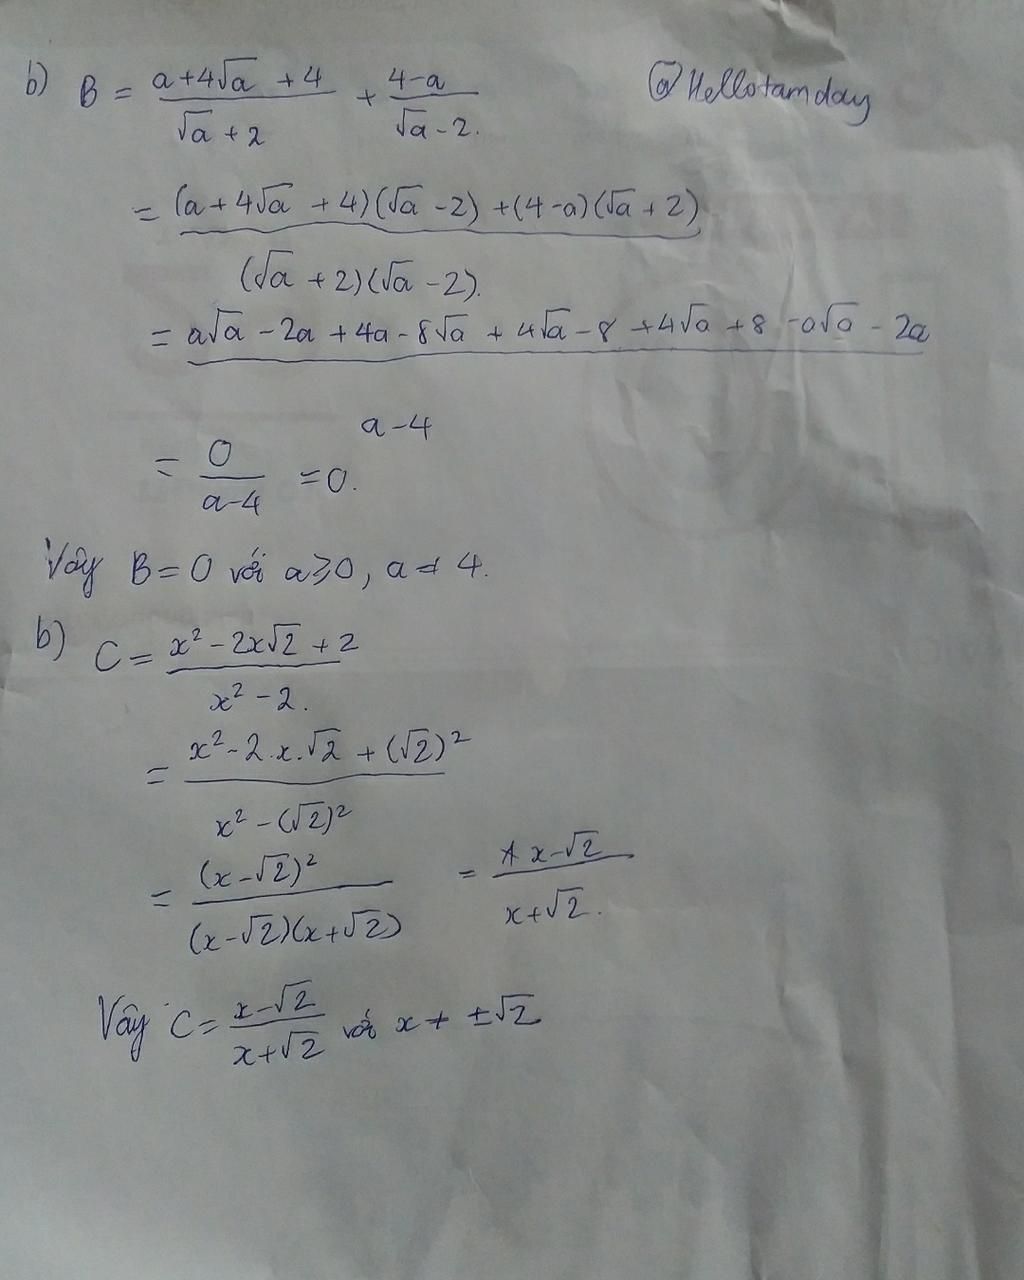 b) B = \frac{a+4\sqrt{a}+4}{\sqrt{a}+2} + \frac{4-a}{\sqrt{a}-2}. @Hellotamday
= \frac{(a+4\sqrt{a}+4)(\sqrt{a}-2)+(4-a)(\sqrt{a}+2)}{(\sqrt{a}+2)(\sqrt{a}-2).}
= \frac{a\sqrt{a}-2a+4a-8\sqrt{a}+4\sqrt{a}-8+4\sqrt{a}+8-a\sqrt{a}-2a}{a-4}
= \frac{0}{a-4} = 0.
Vậy B = 0 với a ≥ 0, a ≠ 4.
b) C = \frac{x^2-2x\sqrt{2}+2}{x^2-2.}
= \frac{x^2-2.x.\sqrt{2}+(\sqrt{2})^2}{x^2-(\sqrt{2})^2}
= \frac{(x-\sqrt{2})^2}{(x-\sqrt{2})(x+\sqrt{2})} = \frac{x-\sqrt{2}}{x+\sqrt{2}.}
Vậy C = \frac{x-\sqrt{2}}{x+\sqrt{2}} với x ≠ ±\sqrt{2}